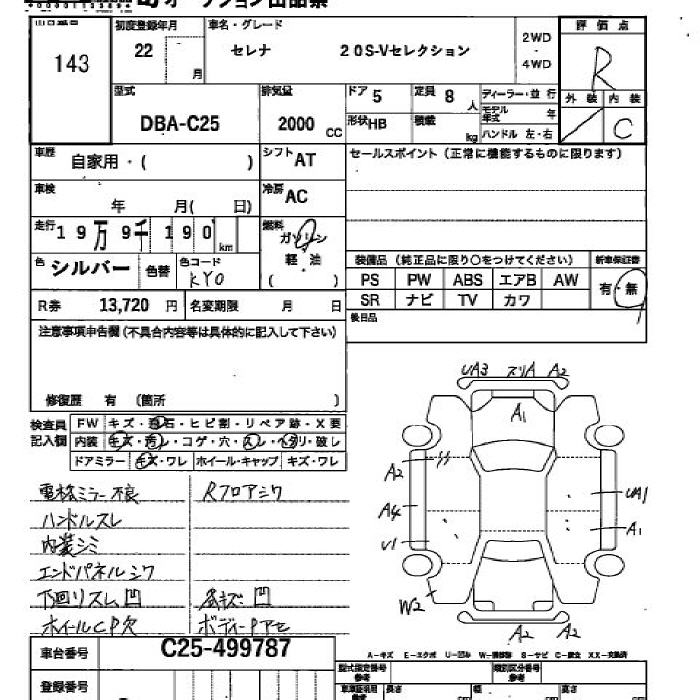 オークション出品票
出品番号
143
初度登録年月
22
月
車名・グレード
セレナ 20S-Vセレクション
2WD
・
4WD
評価点
R
外装 内装
C
型式
DBA-C25
排気量
2000 CC
ドア 5
定員 8 人
形状 HB
積載 kg
ディーラー・並行
モデル年式 年
ハンドル 左・右
車歴 自家用・( )
シフト AT
車検 年 月( 日)
冷房 AC
走行 19万9千190 km
燃料 ガソリン
軽・油
( )
色 シルバー
色替
色コード KY0
R券 13,720 円
名変期限 月 日
セールスポイント (正常に機能するものに限ります)
装備品 (純正品に限り○をつけてください)
新車保証書
PS PW ABS エアB AW
SR ナビ TV カワ
有・無
後日品
注意事項申告欄 (不具合内容等は具体的に記入して下さい)
修復歴 有 (箇所 )
検査員記入欄
FW キズ・飛石・ヒビ割・リペア跡・X要
内装 キズ・汚れ・コゲ・穴・スレ・ヘタリ・破レ
ドアミラー キズ・ワレ ホイール・キャップ キズ・ワレ
電格ミラー不良
ハンドルスレ
内装シミ
エンドパネルシワ
下廻りスレ凹
ホイールCP欠
Rフロアシワ
各キズ凹
ボディーPアセ
UA3 スリA A2
A1
A2
A4
U1
W2
UA1
A1
A2 A2
車台番号 C25-499787
登録番号
A-キズ E-エクボ U-凹み W-補修跡 S-サビ C-腐食 XX-交換済
型式指定番号 参考
類別区分番号 参考
車車証明用 参考
長さ cm
幅 cm
高さ